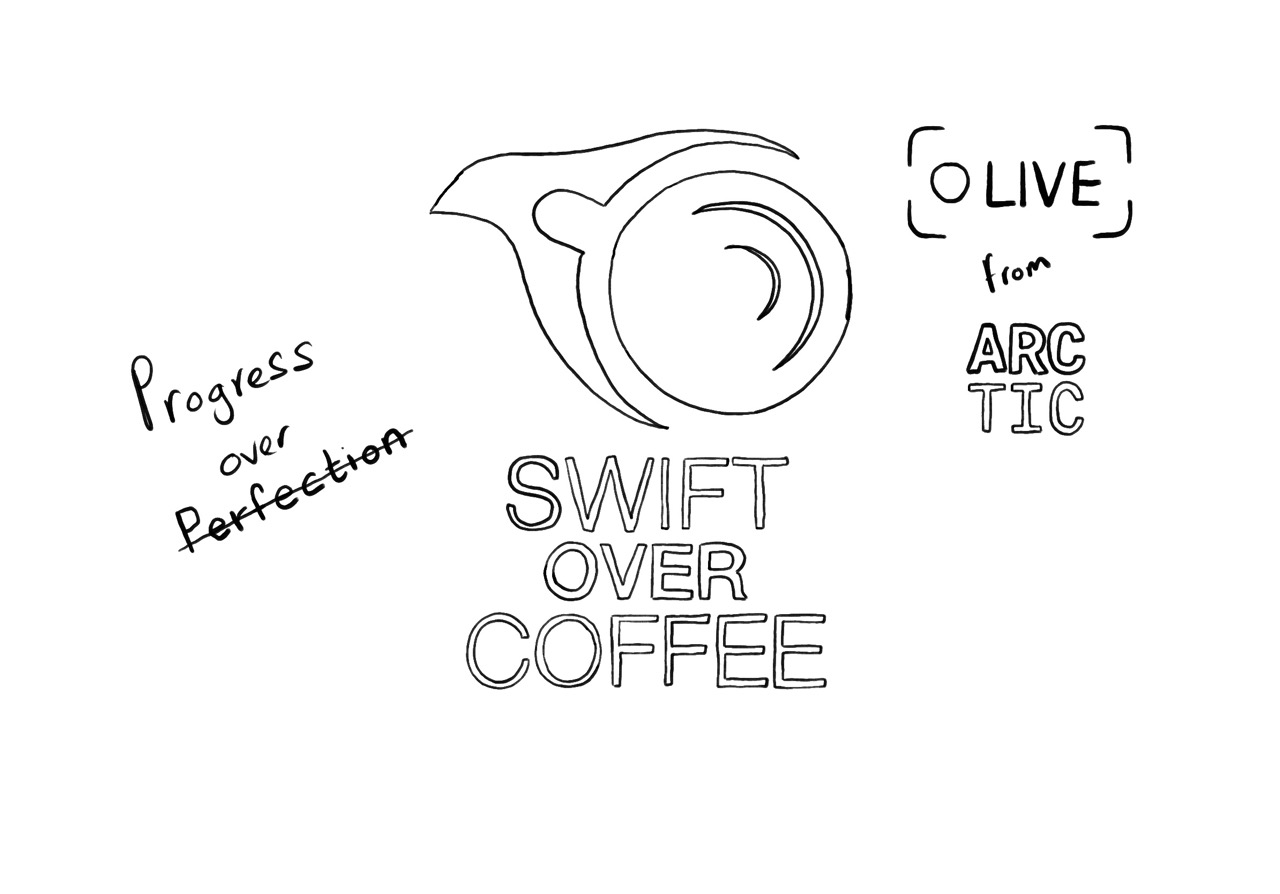 Progress
over
Perfection
SWIFT
OVER
COFFEE
LIVE
from
ARC
TIC